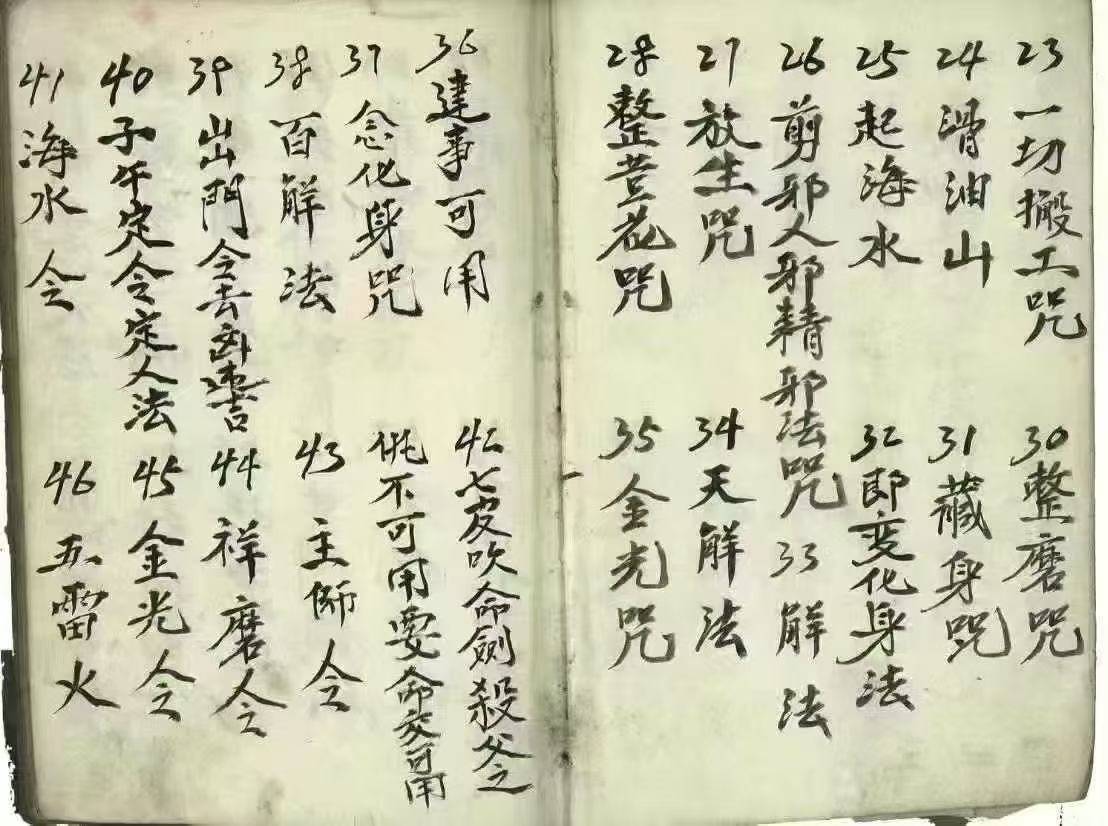 23 一切搬工咒
24 滑油山
25 起海水
26 剪邪人邪精邪法咒
27 放生咒
28 整荳花咒
30 整磨咒
31 藏身咒
32 即变化身法
33 解法
34 天解法
35 金光咒
36 建事可用
37 念化身咒
38 百解法
39 出門令去凶進吉
40 子午定令定人法
41 海水令
42 七变吹命劍殺父之
仇不可用要命交可用
43 主师令
44 祥磨令
45 金光令
46 五雷火